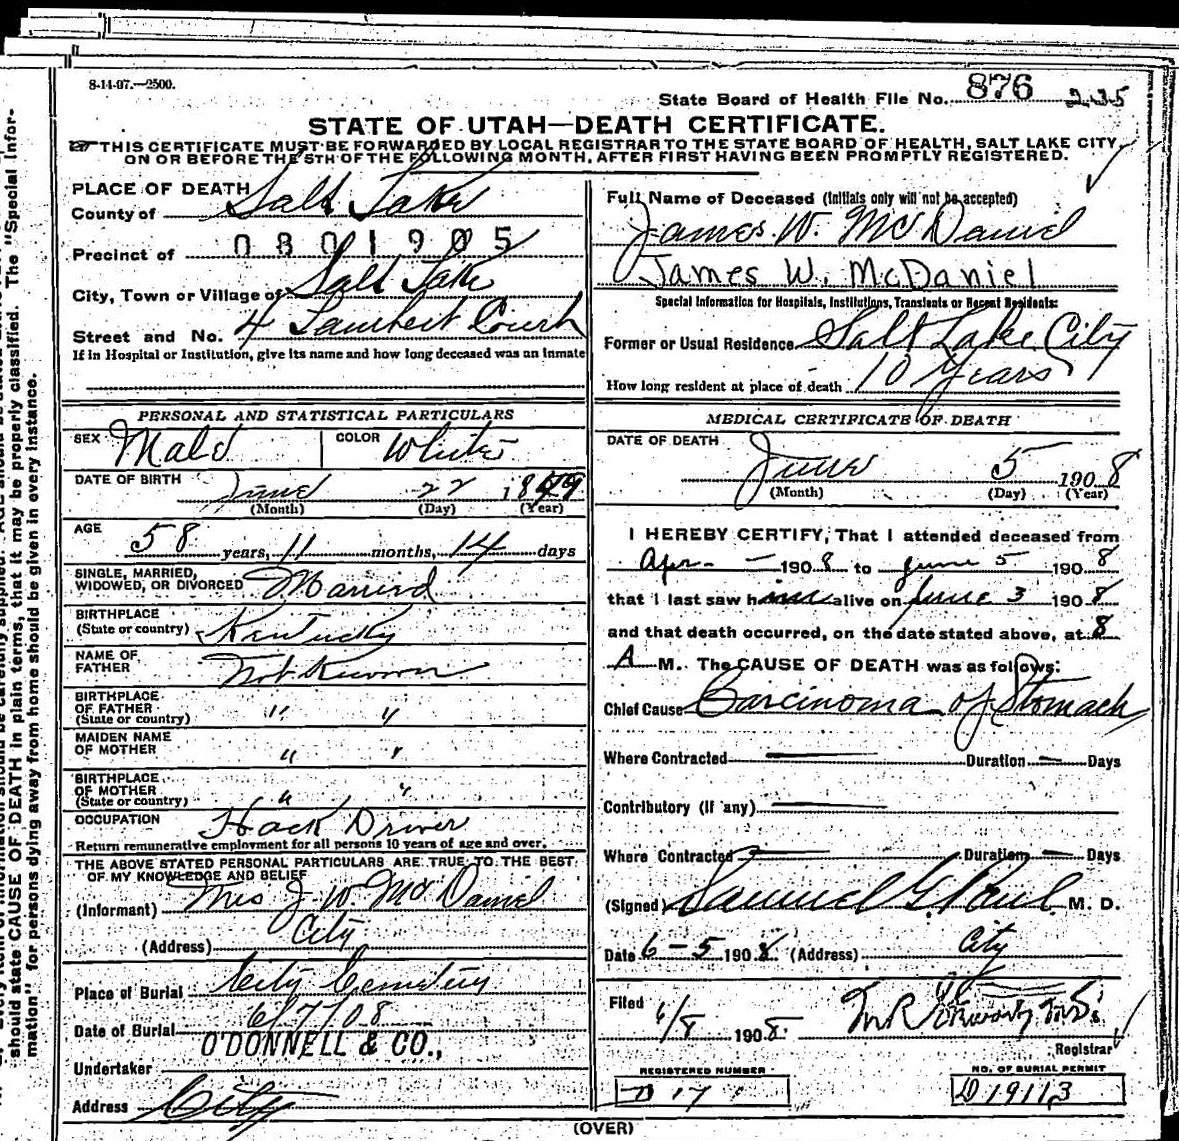 8-14-07.—2500.
State Board of Health File No. 876 235
STATE OF UTAH—DEATH CERTIFICATE.
THIS CERTIFICATE MUST BE FORWARDED BY LOCAL REGISTRAR TO THE STATE BOARD OF HEALTH, SALT LAKE CITY,
ON OR BEFORE THE 5TH OF THE FOLLOWING MONTH, AFTER FIRST HAVING BEEN PROMPTLY REGISTERED.
PLACE OF DEATH
County of Salt Lake
Precinct of 0801905
City, Town or Village of Salt Lake
Street and No. 4 Lambert Court
If in Hospital or Institution, give its name and how long deceased was an inmate
PERSONAL AND STATISTICAL PARTICULARS
SEX Male COLOR White
DATE OF BIRTH June 22 1849
(Month) (Day) (Year)
AGE
58 years, 11 months, 14 days
SINGLE, MARRIED,
WIDOWED, OR DIVORCED Married
BIRTHPLACE
(State or country) Kentucky
NAME OF
FATHER Not Known
BIRTHPLACE
OF FATHER
(State or country) " "
MAIDEN NAME
OF MOTHER " "
BIRTHPLACE
OF MOTHER
(State or country) " "
OCCUPATION Hack Driver
Return remunerative employment for all persons 10 years of age and over.
THE ABOVE STATED PERSONAL PARTICULARS ARE TRUE TO THE BEST
OF MY KNOWLEDGE AND BELIEF
(Informant) Mrs J. W. McDaniel
(Address) City
Place of Burial City Cemetery
Date of Burial 6/7/08
O'DONNELL & CO.,
Undertaker
Address City
Full Name of Deceased (Initials only will not be accepted)
James W. McDaniel
James W. McDaniel
Special Information for Hospitals, Institutions, Transients or Recent Residents:
Former or Usual Residence Salt Lake City
How long resident at place of death 10 Years
MEDICAL CERTIFICATE OF DEATH
DATE OF DEATH
June 5 1908
(Month) (Day) (Year)
I HEREBY CERTIFY, That I attended deceased from
Apr. — 1908 to June 5 1908
that I last saw him alive on June 3 1908
and that death occurred, on the date stated above, at 8
A M. The CAUSE OF DEATH was as follows:
Chief Cause Carcinoma of Stomach
Where Contracted — Duration — Days
Contributory (if any) —
Where Contracted — Duration — Days
(Signed) Samuel G. Paul M. D.
Date 6-5 1908 (Address) City
Filed 6/8 1908.
Registrar
REGISTERED NUMBER
D 17
NO. OF BURIAL PERMIT
D 19113
(OVER)
should state CAUSE OF DEATH in plain terms, that it may be properly classified. The "Special Infor-
mation" for persons dying away from home should be given in every instance.